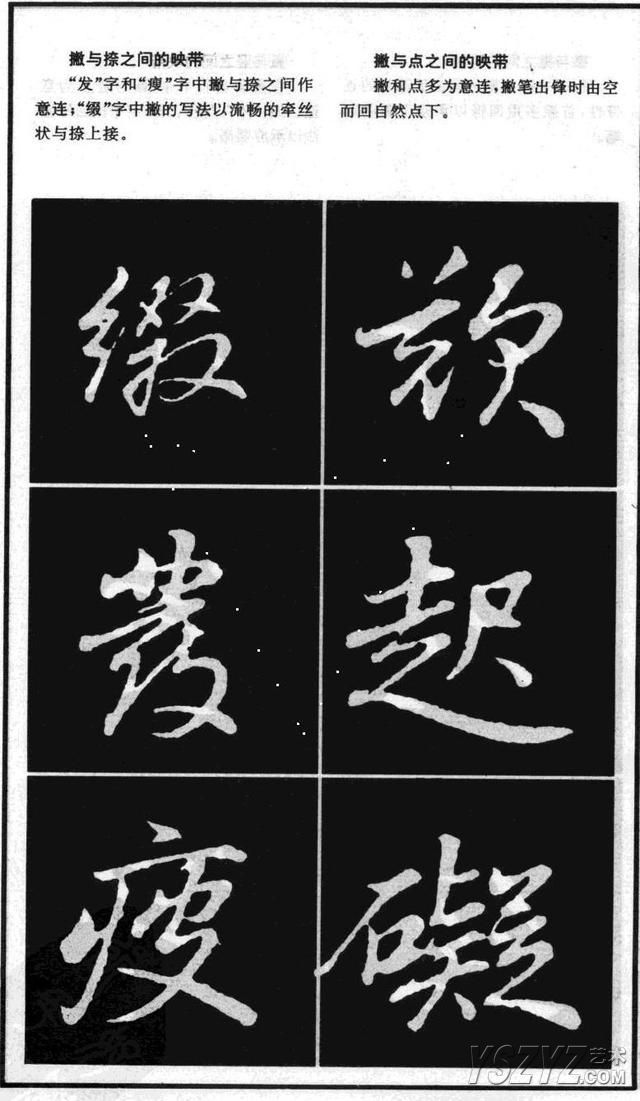 撇与捺之间的映带
“发”字和“瘦”字中撇与捺之间作
意连;“缀”字中撇的写法以流畅的牵丝
状与捺上接。
撇与点之间的映带
撇和点多为意连,撇笔出锋时由空
而回自然点下。
缀
發 起
瘦 礙
YSZYZ艺术
.COM